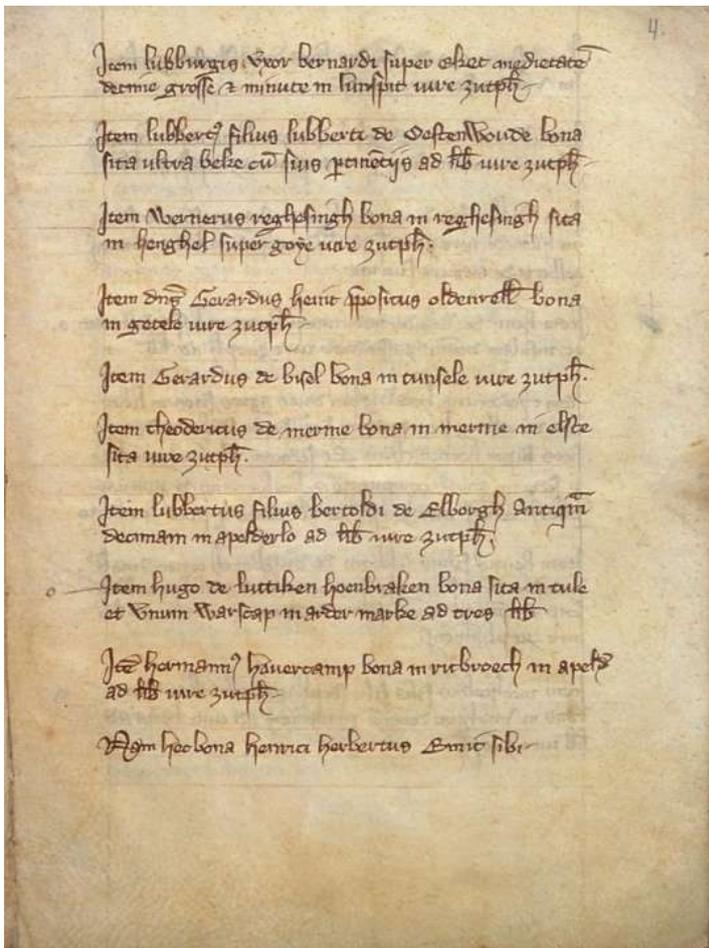 4.
Item lubburgis uxor bernardi super eket medietatē
decime grosse ⁊ minute in lunspit iure zutph̄
Item lubbert⁹ filius lubberti de Oestenwoude bona
sita ultra beke cū suis ꝑtinētijs ad lib̄ iure zutph̄
Item Wernerus reghesingh bona in reghesingh sita
in henghel super goye iure zutph̄.
Item dn̄s Gerardus p̄positus oldenzell̄ bona
in getele iure zutph̄
Item Gerardus de bisel bona in tunsele iure zutph̄.
Item theodericus de merme bona in merme in elste
sita iure zutph̄.
Item lubbertus filius bertoldi de Elborgh Antiquā
decimam in apelderlo ad lib̄ iure zutph̄.
Item hugo de luttiken hoenbraken bona sita in tule
et Vnum Warscap in arder marke ad tres lib̄
Itē hermann⁹ havercamp bona in ritbroech in apeld̄
ad lib̄ iure zutph̄
Nam hec bona henrici herbertus Emit sibi